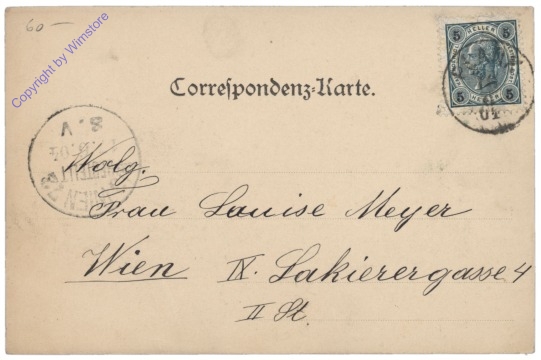 60 –
Copyright by Wimstore
5 HELLER 5
5 5
Correspondenz-Karte.
8. V
WIEN
Wolg.
Frau Louise Meyer
Wien IX. Lakierergasse 4
II St.